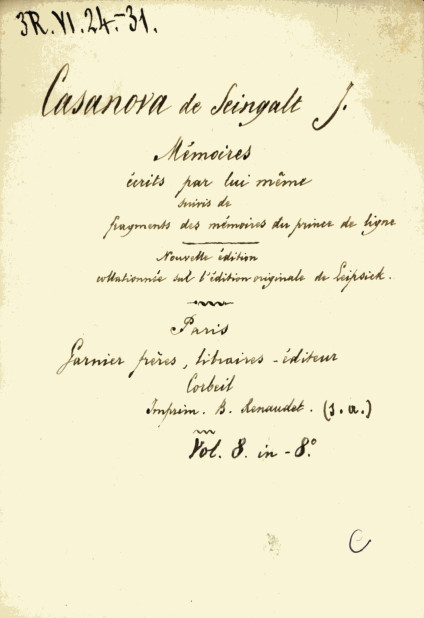 3R.VI.24.-31.
Casanova de Seingalt J.
Mémoires
écrits par lui même
suivis de
fragments des mémoires du prince de ligne
Nouvelle édition
collationnée sur l'édition originale de Leipsick.
Paris
Garnier frères, libraires-éditeur
Corbeil
Imprim. B. Renaudet. (s.a.)
Vol. 8. in-8°
C